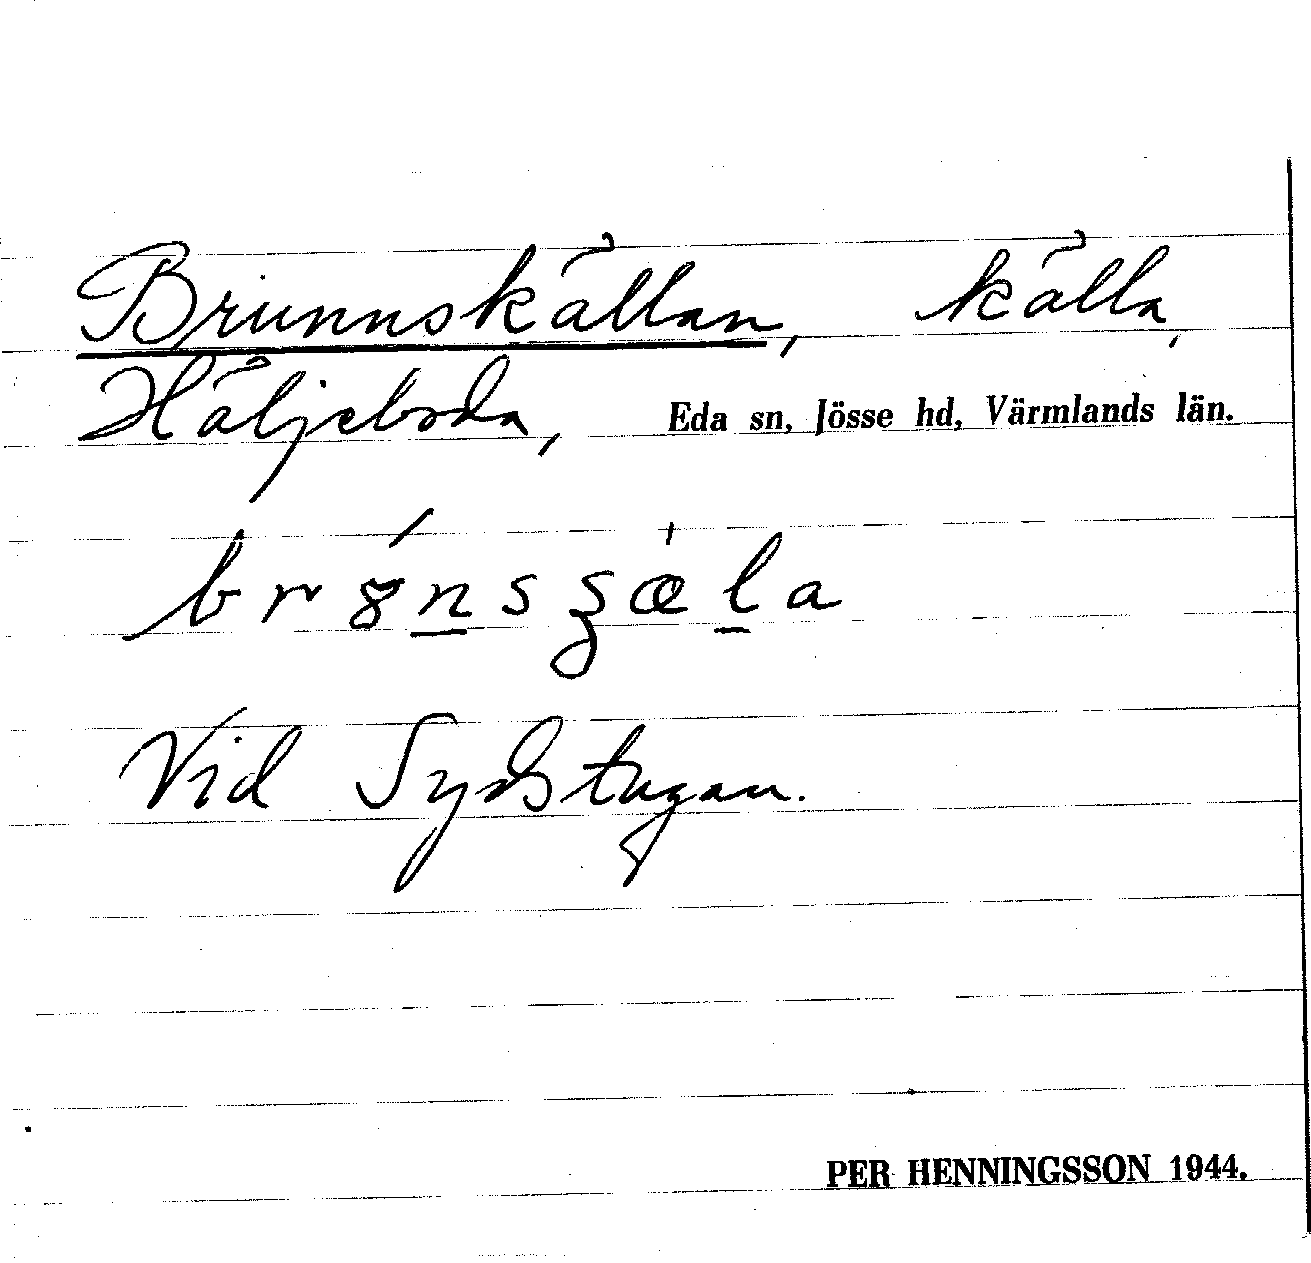 Brunnskällan, källa,
Häljeboda, Eda sn, Jösse hd, Värmlands län.
Vid Sydstugan.
PER HENNINGSSON 1944.